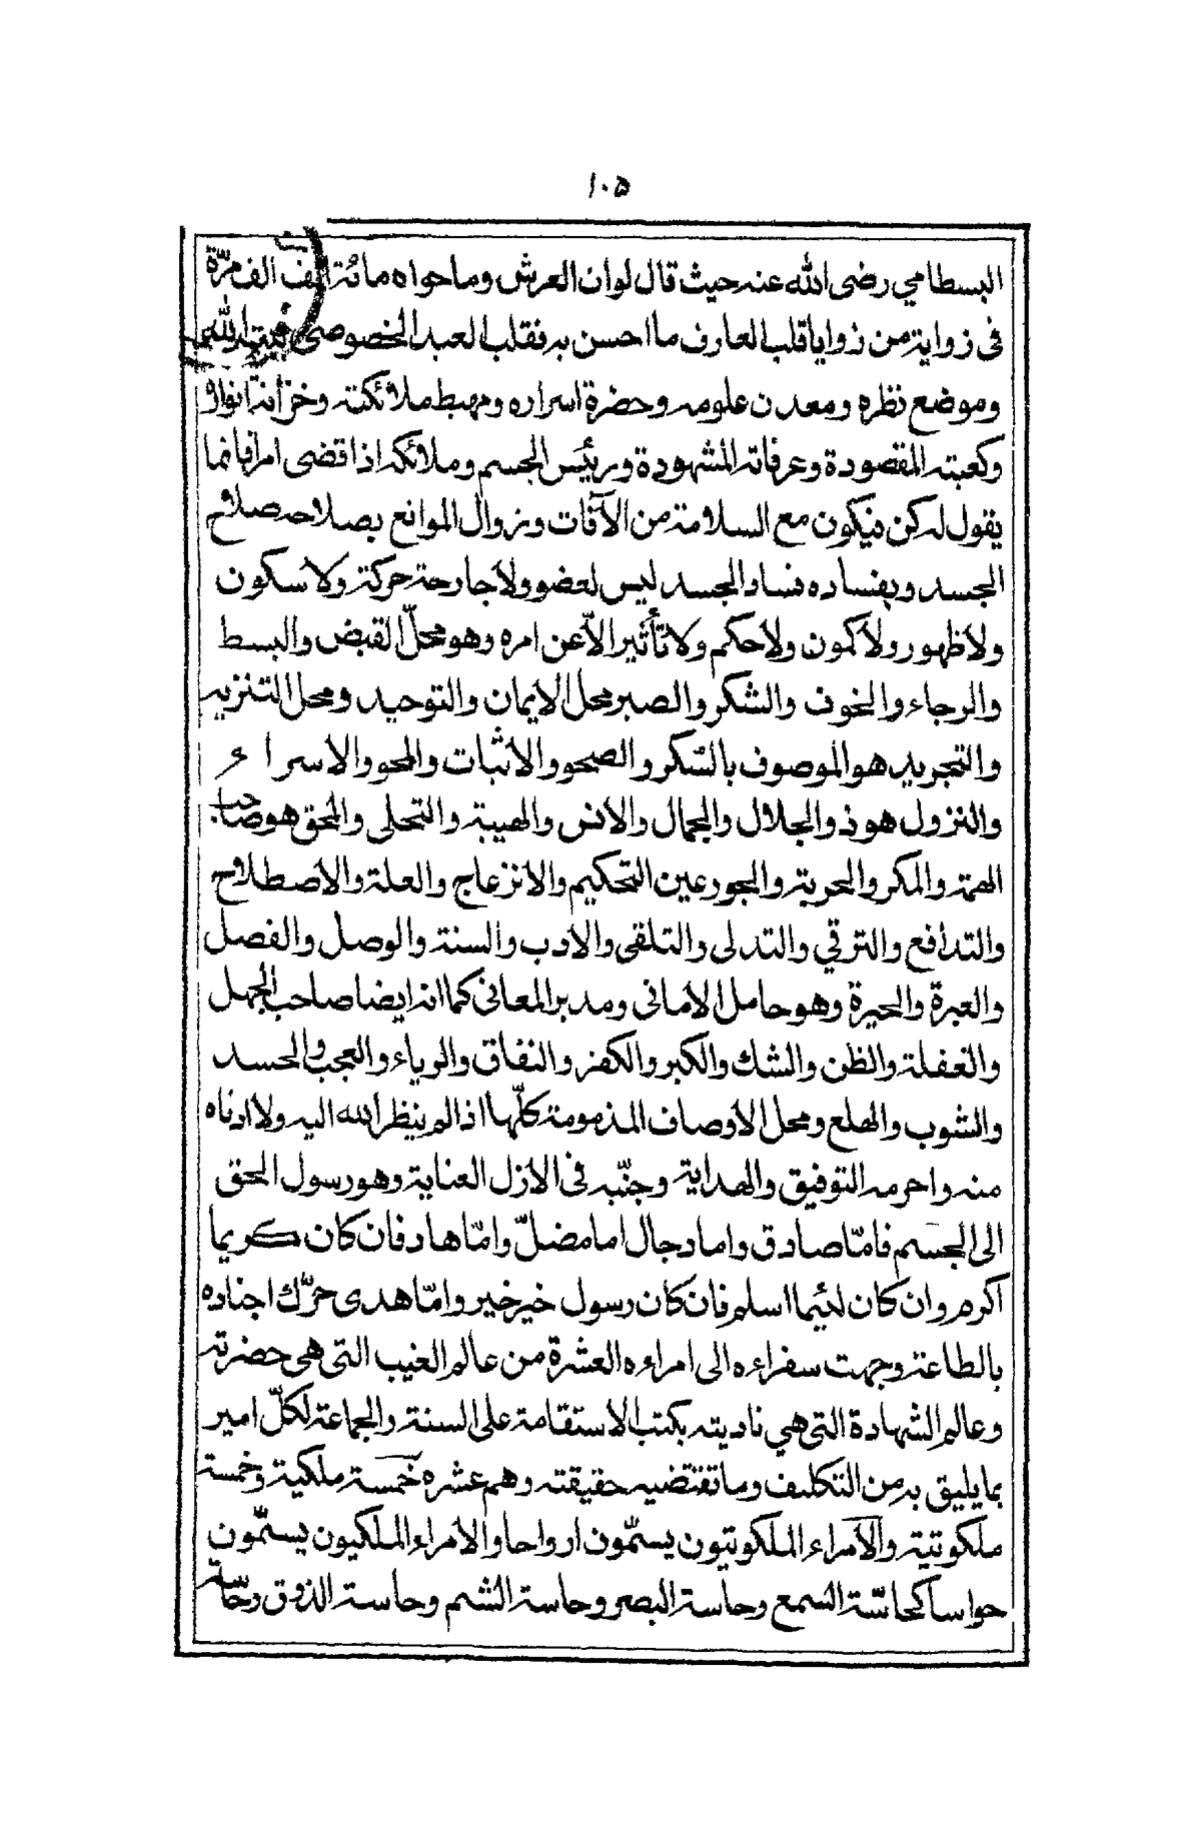 ١٠۵
البسطامي رضى الله عنه حيث قال لوان العرش وما حواه مائة الف الف مرّة
فى زواية من زوايا قلب العارف ما احسن به فقلب العبد الخصوصى بيت الله
وموضع نظره ومعدن علومه وحضرة اسراره ومهبط ملائكته وخزانة انواره
وكعبته المقصودة وعرفاته المشهودة ورئيس الجسم وملائكه اذا قضى امرا فانما
يقول له كن فيكون مع السلامة من الآفات وزوال الموانع بصلاحه صلاح
الجسد وبفساده فساد الجسد ليس لعضو ولا جارحة حركة ولا سكون
ولا ظهور ولا كمون ولا حكم ولا تأثير الاّ عن امره وهو محلّ القبض والبسط
والرجاء والخوف والشكر والصبر محل الايمان والتوحيد ومحل التنزيه
والتجريد هو الموصوف بالسّكر والصحو والاثبات والمحو والاسراء
والنزول هو ذو الجلال والجمال والانس والهيبة والتحلى والمحق هو صاحب
الهمة والمكر والحرية والجور عين التحكيم والانزعاج والعلة والاصطلاح
والتدافع والترقي والتدلى والتلقى والادب والسنة والوصل والفصل
والعبرة والحيرة وهو حامل الامانى ومدبر المعانى كما انه ايضا صاحب الجهل
والغفلة والظن والشك والكبر والكفر والنفاق والرياء والعجب والحسد
والشوب والهلع ومحل الاوصاف المذمومة كلّها اذا لم ينظر الله اليه ولا ادناه
منه واحرمه التوفيق والهداية وجنّبه فى الازل العناية وهو رسول الحق
الى الجسم فامّا صادق واما دجال اما مضلّ وامّا هاد فان كان كريما
اكرم وان كان لئيما اسلم فان كان رسول خير خير وامّا هدى حرّك اجناده
بالطاعة وجهت سفراءه الى امراءه العشرة من عالم الغيب التى هى حضرته
وعالم الشهادة التى هي ناديته بكتب الاستقامة على السنة والجماعة لكلّ امير
بما يليق به من التكليف وما تقتضيه حقيقته وهم عشره خمسة ملكية وخمسة
ملكوتية والامراء الملكوتيون يسمّون ارواحا والامراء الملكيون يسمّون
حواسا كحاسّة السمع وحاسة البصر وحاسة الشم وحاسة الذوق وحاسّة